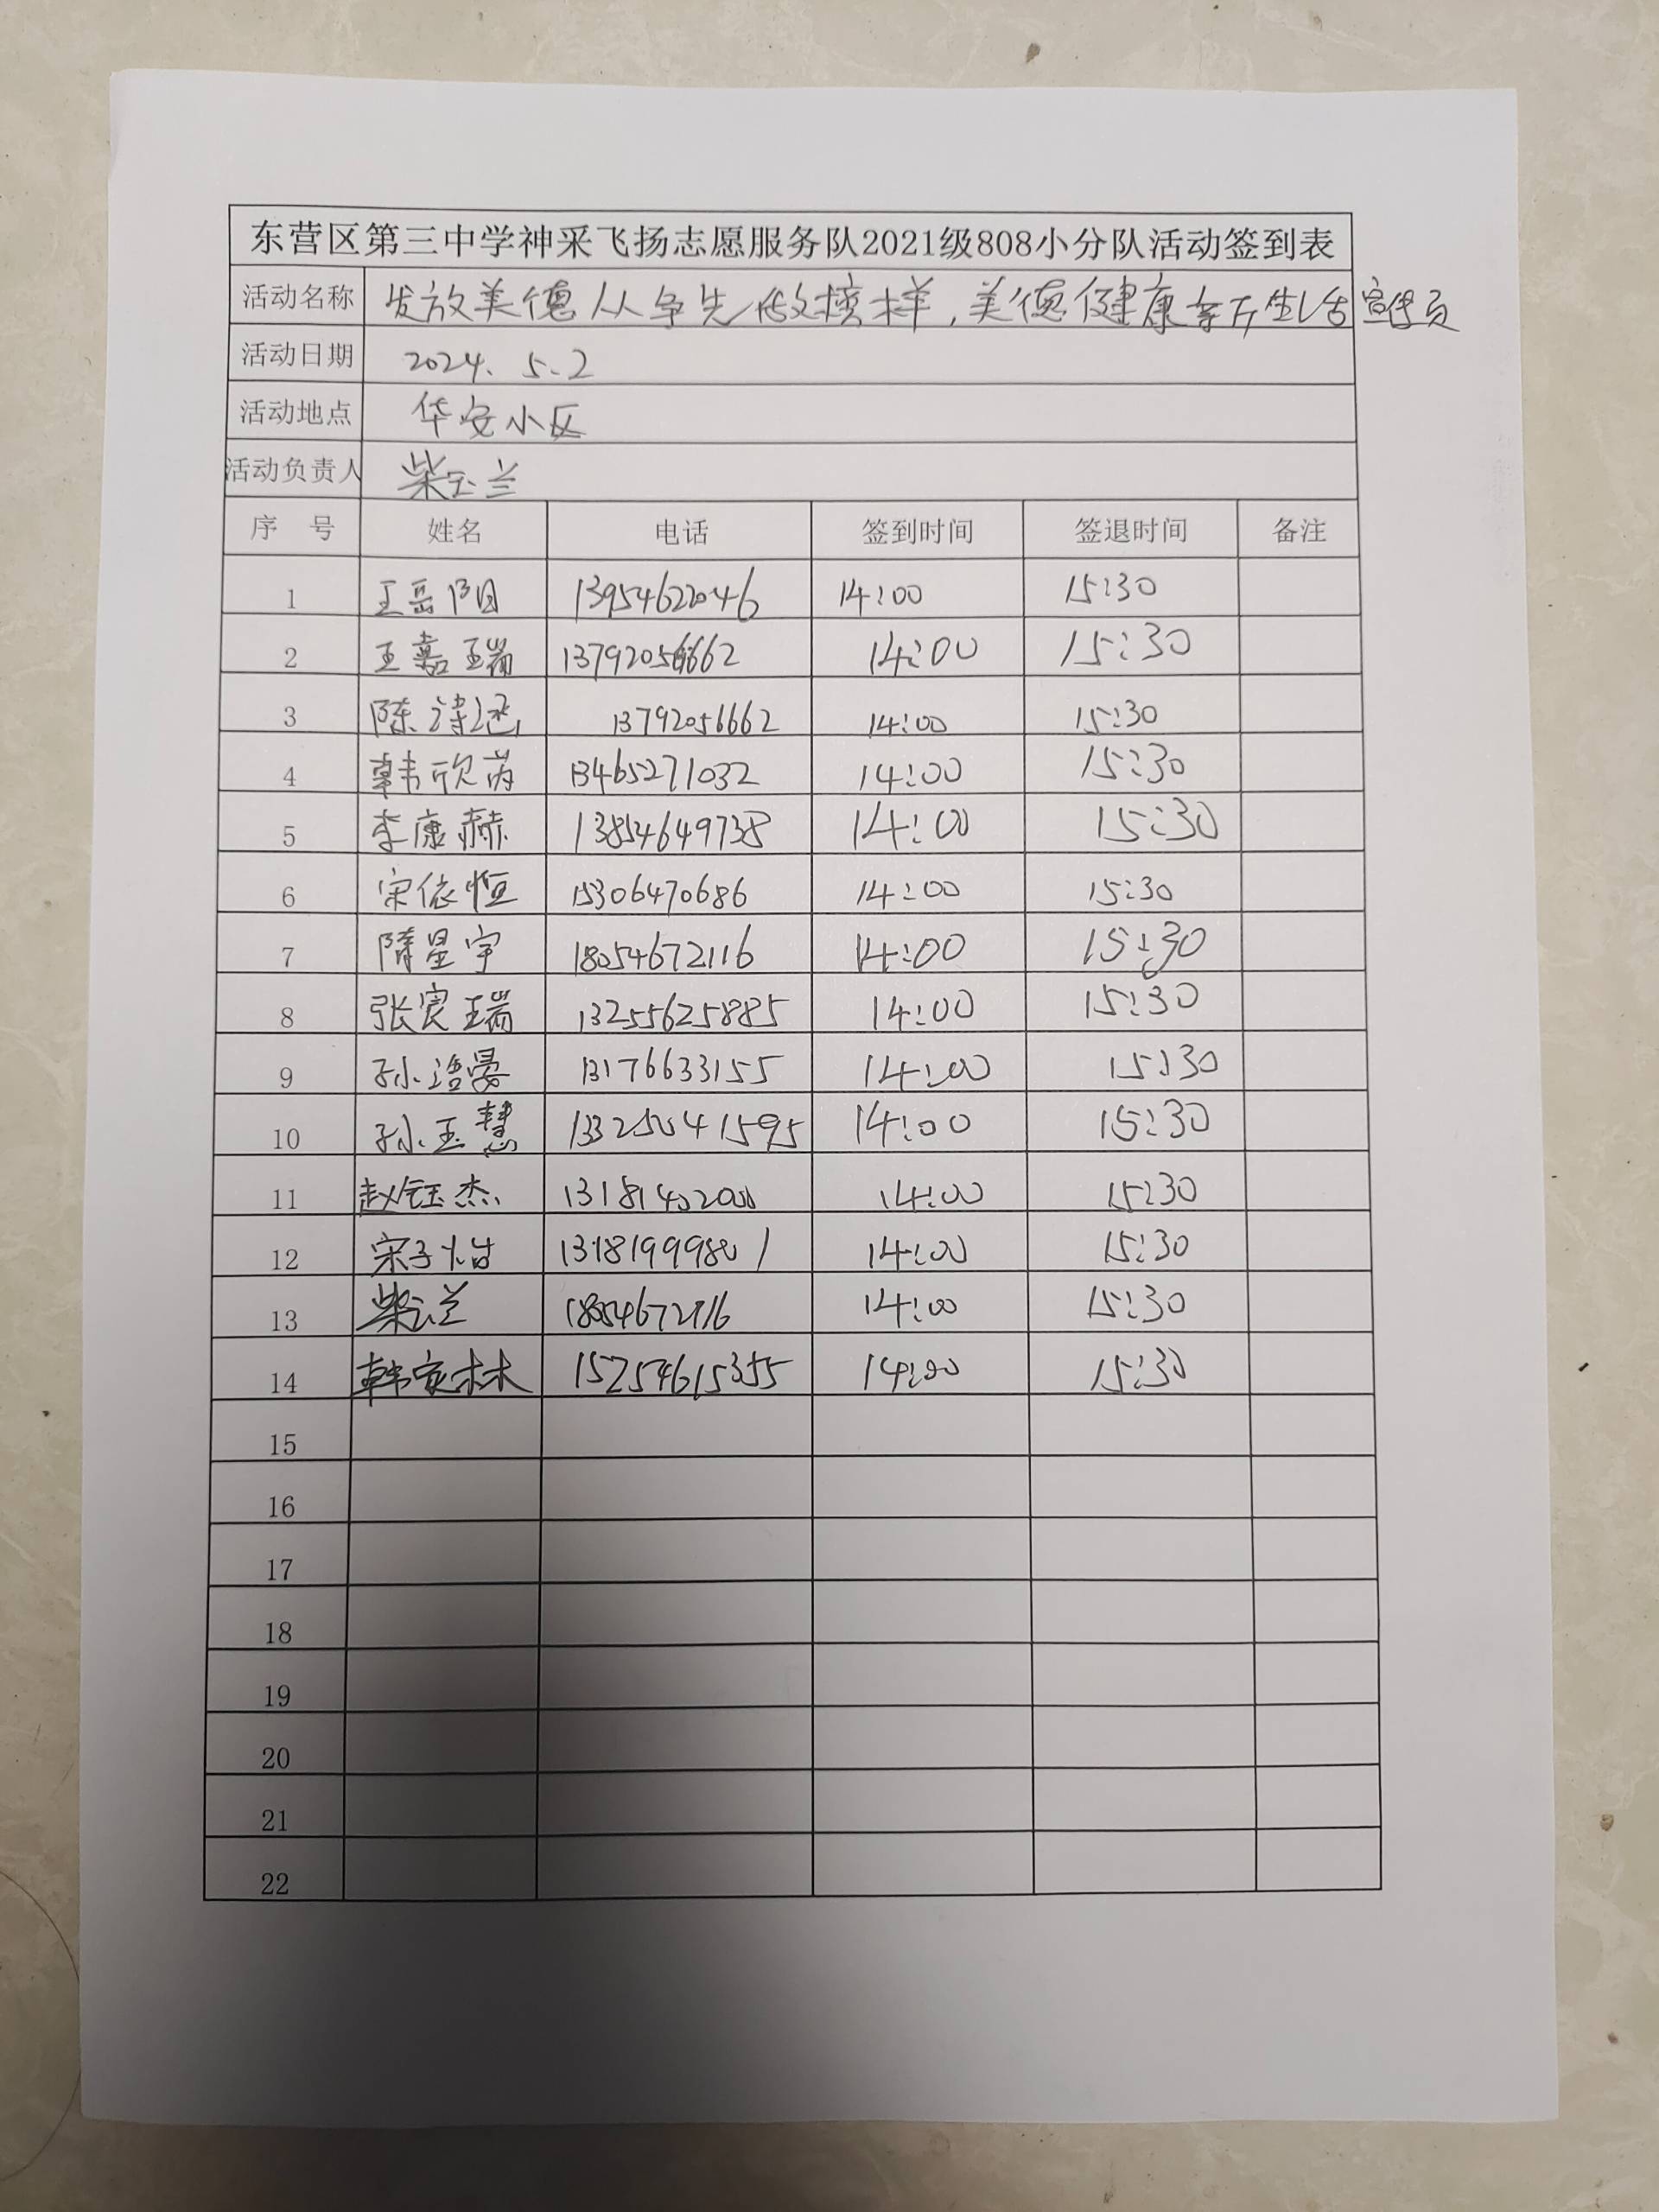 东营区第三中学神采飞扬志愿服务队2021级808小分队活动签到表
活动名称 发放美德从争先做榜样,美德健康新生活宣传员
活动日期 2024.5.2
活动地点 华安小区
活动负责人 柴玉兰
序 号 姓名 电话 签到时间 签退时间 备注
1 王岳阳 13954622046 14:00 15:30
2 王嘉瑞 13792056662 14:00 15:30
3 陈 13792056662 14:00 15:30
4 韩欣芮 13465271032 14:00 15:30
5 李康赫 13854649738 14:00 15:30
6 宋依恒 15306470686 14:00 15:30
7 隋星宇 18054672116 14:00 15:30
8 张宸瑞 13255625885 14:00 15:30
9 孙浩晏 13176633155 14:00 15:30
10 孙玉慧 14:00 15:30
11 赵钰杰 13181402000 14:00 15:30
12 宋子怡 14:00 15:30
13 柴玉兰 14:00 15:30
14 韩家林 15254615355 14:00 15:30
15
16
17
18
19
20
21
22